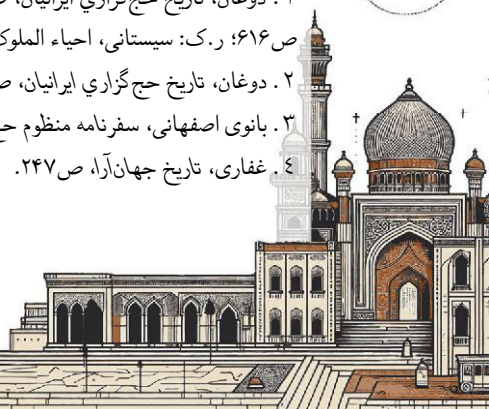 ۱. دوغان، تاریخ حج‌گزاري ایرانیان،
ص۶۱۶؛ ر.ک: سیستانی، احیاء الملوک
۲. دوغان، تاریخ حج‌گزاري ایرانیان، ص
۳. بانوی اصفهانی، سفرنامه منظوم
٤. غفاری، تاریخ جهان‌آرا، ص۲۴۷.